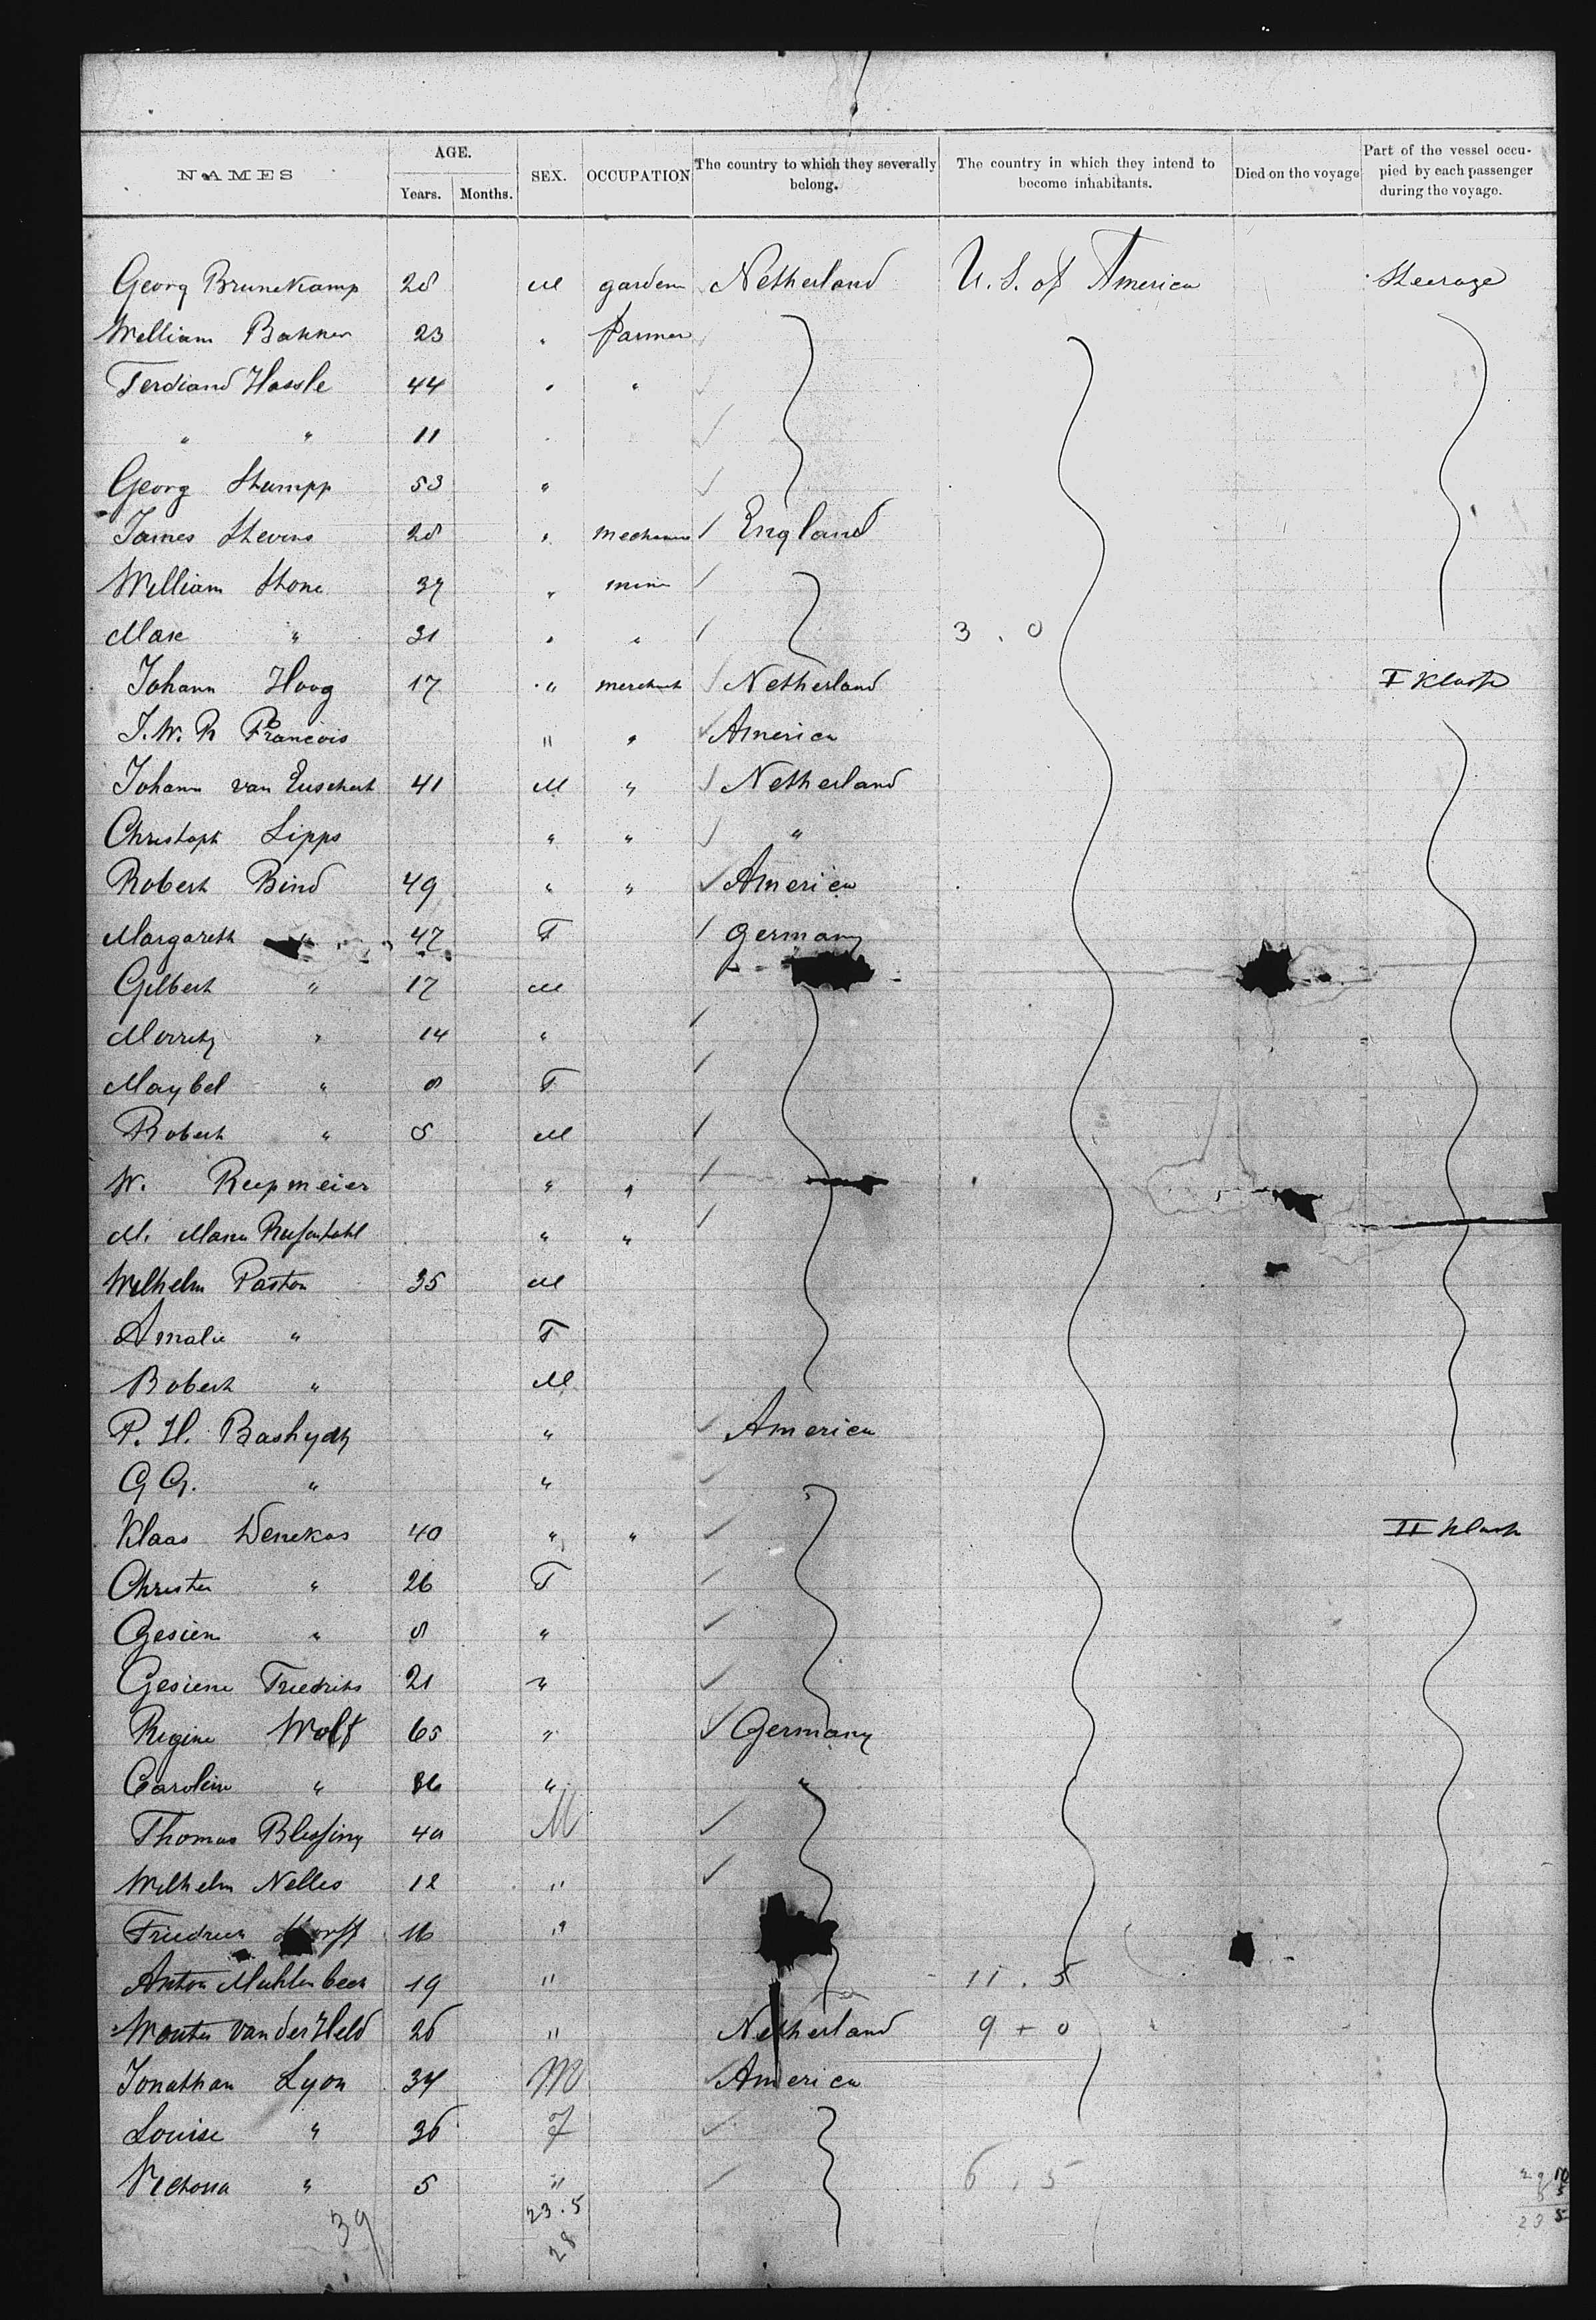 NAMES AGE. Years. Months. SEX. OCCUPATION The country to which they severally belong. The country in which they intend to become inhabitants. Died on the voyage Part of the vessel occupied by each passenger during the voyage.
Georg Brunekamp 28 M garden Netherland U. S. of America Steerage
William Bakker 23 " farmer
Ferdiand Hassle 44 " "
" " 11 "
Georg Stumpp 53 "
James Stevens 28 " mechanic England
William Stone 37 "
" 31 " " 3 . 0
Johann Hoog 17 " merchant Netherland I Klasse
J. W. R Francois " " America
Johann van 41 M " Netherland
Christoph Lipps " " "
Robert Bind 49 " " America
Margareth " 47 F Germany
Gilbert " 17 M
" 14 "
Maybel " 8 F
Robert " M
W. Reepmeier " "
M. " "
Wilhelm Paston 35 M
Amalie " F
Robert " M
P. H. " America
G G. " "
Klaas Denekas 40 " " II Klasse
" 26 F
" 8 "
Gesiene Friedrichs 21 "
Regine Wolf 65 " Germany
Carolin " 36 " "
Thomas Blessing 40 M
Wilhelm Nelles 12 "
16 "
Anton 19 " 11 . 5
Wouter van der Held 26 " Netherland 9 + 0
Jonathan Lyon 34 M America
Louise " 36 F
" 5 " 6 . 5
39 23 . 5
28